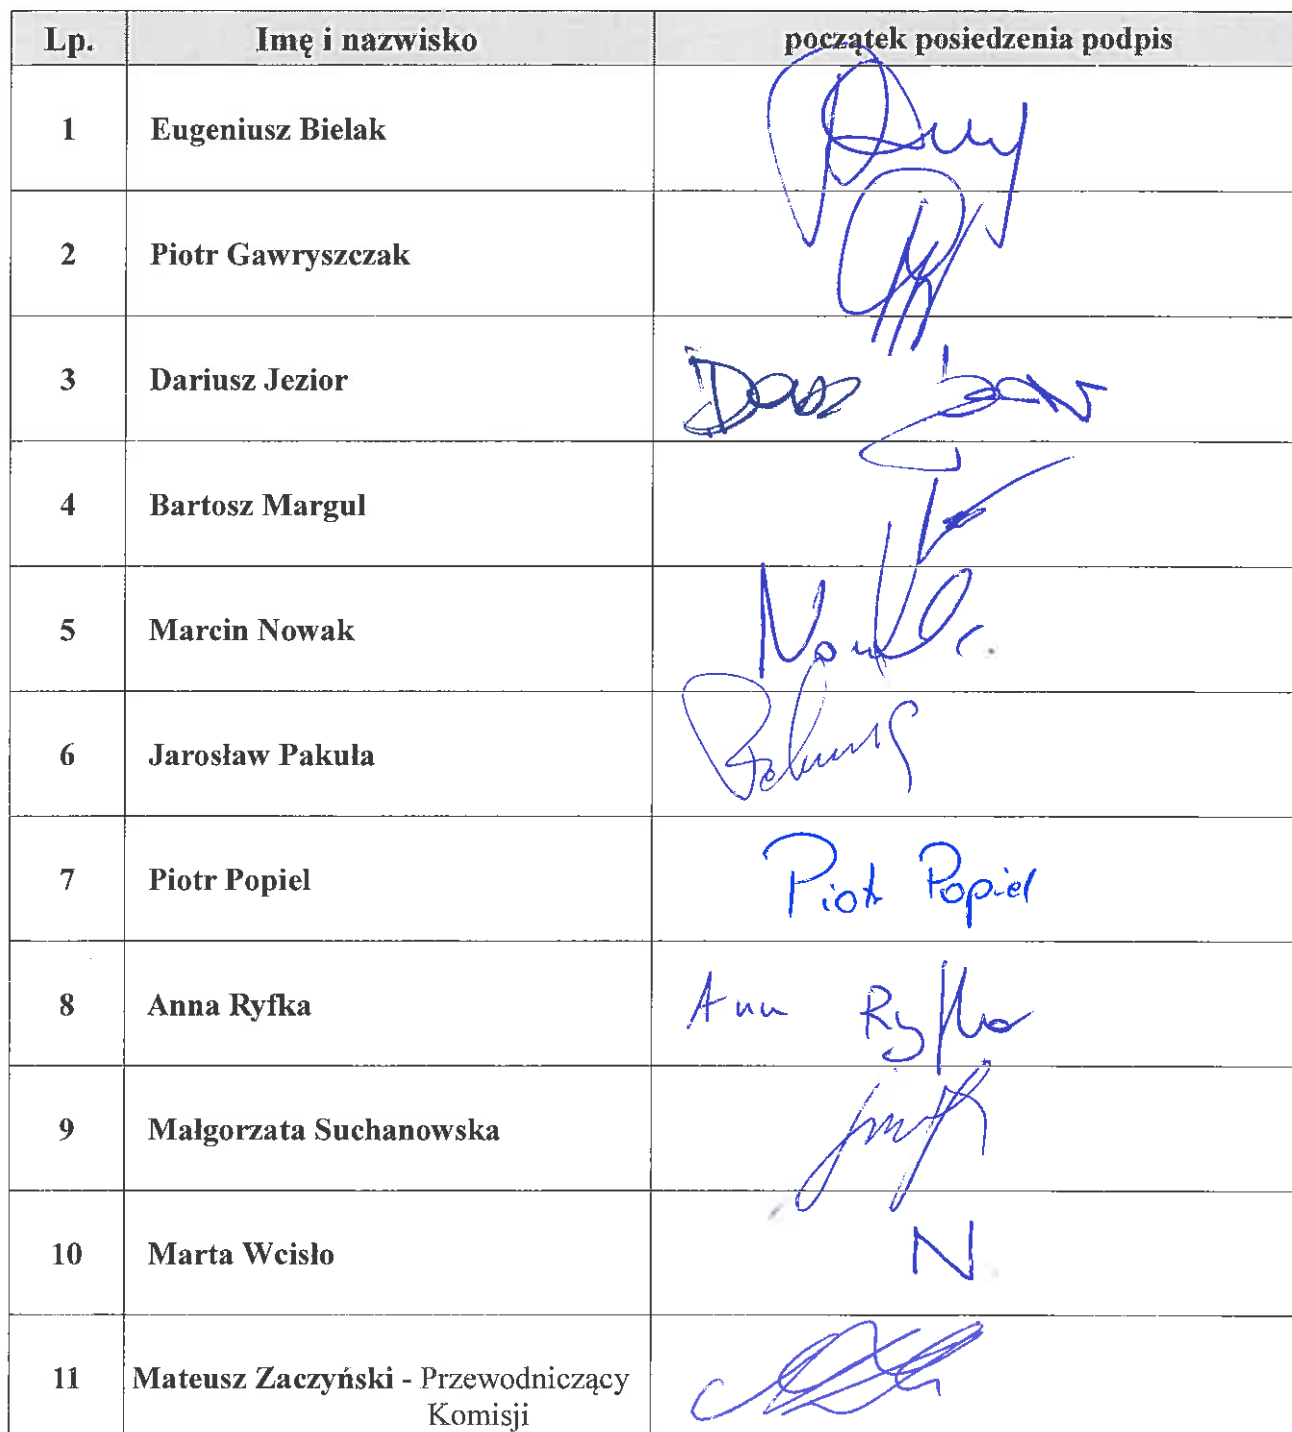 Lp. Imię i nazwisko początek posiedzenia podpis
1 Eugeniusz Bielak
2 Piotr Gawryszczak
3 Dariusz Jezior
4 Bartosz Margul
5 Marcin Nowak
6 Jarosław Pakuła
7 Piotr Popiel Piotr Popiel
8 Anna Ryfka Ann Ryfka
9 Małgorzata Suchanowska
10 Marta Wcisło N
11 Mateusz Zaczyński - Przewodniczący
Komisji